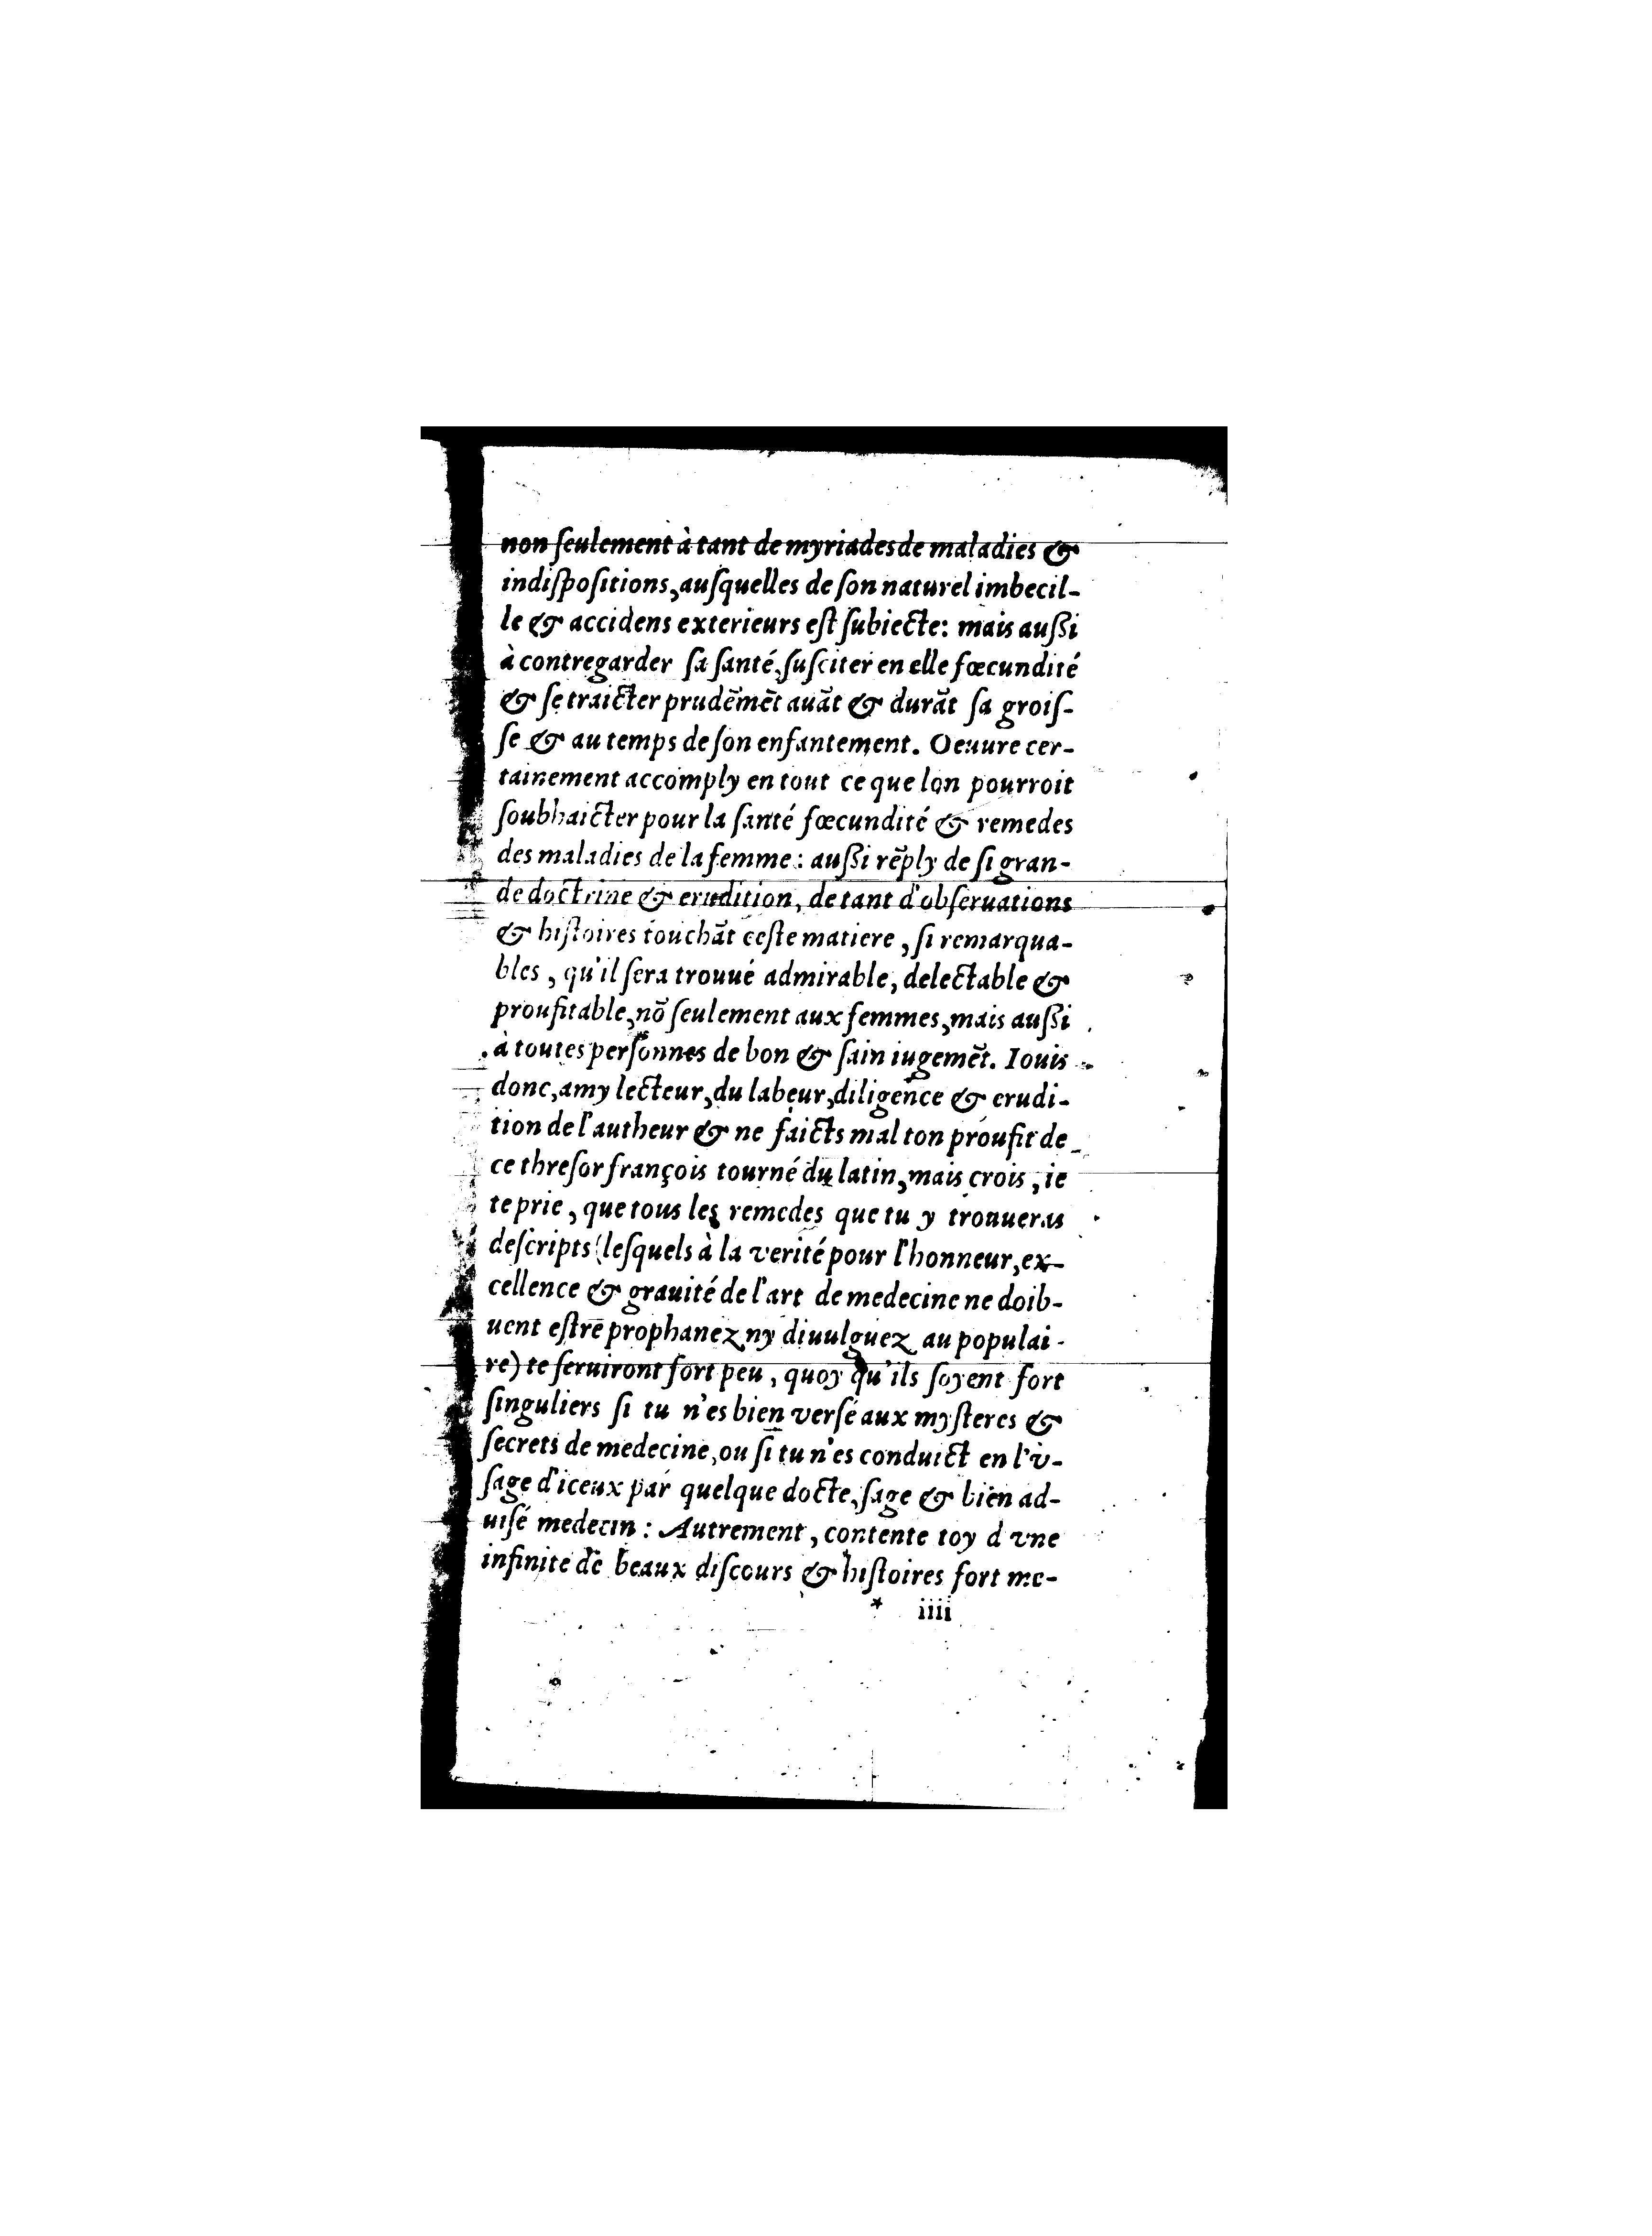 non ſeulement à tant de myriades de maladies &
indiſpoſitions, auſquelles de ſon naturel imbecil-
le & accidens exterieurs eſt ſubiecte: mais auſſi
à contregarder ſa ſanté, ſuſciter en elle fœcundité
& ſe traicter prudēmēt auāt & durāt ſa groiſ-
ſe & au temps de ſon enfantement. Oeuure cer-
tainement accomply en tout ce que lon pourroit
ſoubhaicter pour la ſanté fœcundité & remedes
des maladies de la femme: auſſi rēply de ſi gran-
de doctrine & erudition, de tant d'obſeruations
& hiſtoires touchāt ceſte matiere, ſi remarqua-
bles, qu'il ſera trouué admirable, delectable &
proufitable, nō ſeulement aux femmes, mais auſſi
à toutes perſonnes de bon & ſain iugemēt. Iouis
donc, amy lecteur, du labeur, diligence & erudi-
tion de l'autheur & ne faicts mal ton proufit de
ce threſor françois tourné du latin, mais crois, ie
te prie, que tous les remedes que tu y trouueras
deſcripts (leſquels à la verité pour l'honneur, ex-
cellence & grauité de l'art de medecine ne doib-
uent eſtre prophanez ny diuulguez au populai-
re) te ſeruiront fort peu, quoy qu'ils ſoyent fort
ſinguliers ſi tu n'es bien verſé aux myſteres &
ſecrets de medecine, ou ſi tu n'es conduict en l'v-
ſage d'iceux par quelque docte, ſage & bien ad-
uiſé medecin: Autrement, contente toy d vne
infinite de beaux diſcours & hiſtoires fort me-
* iiii